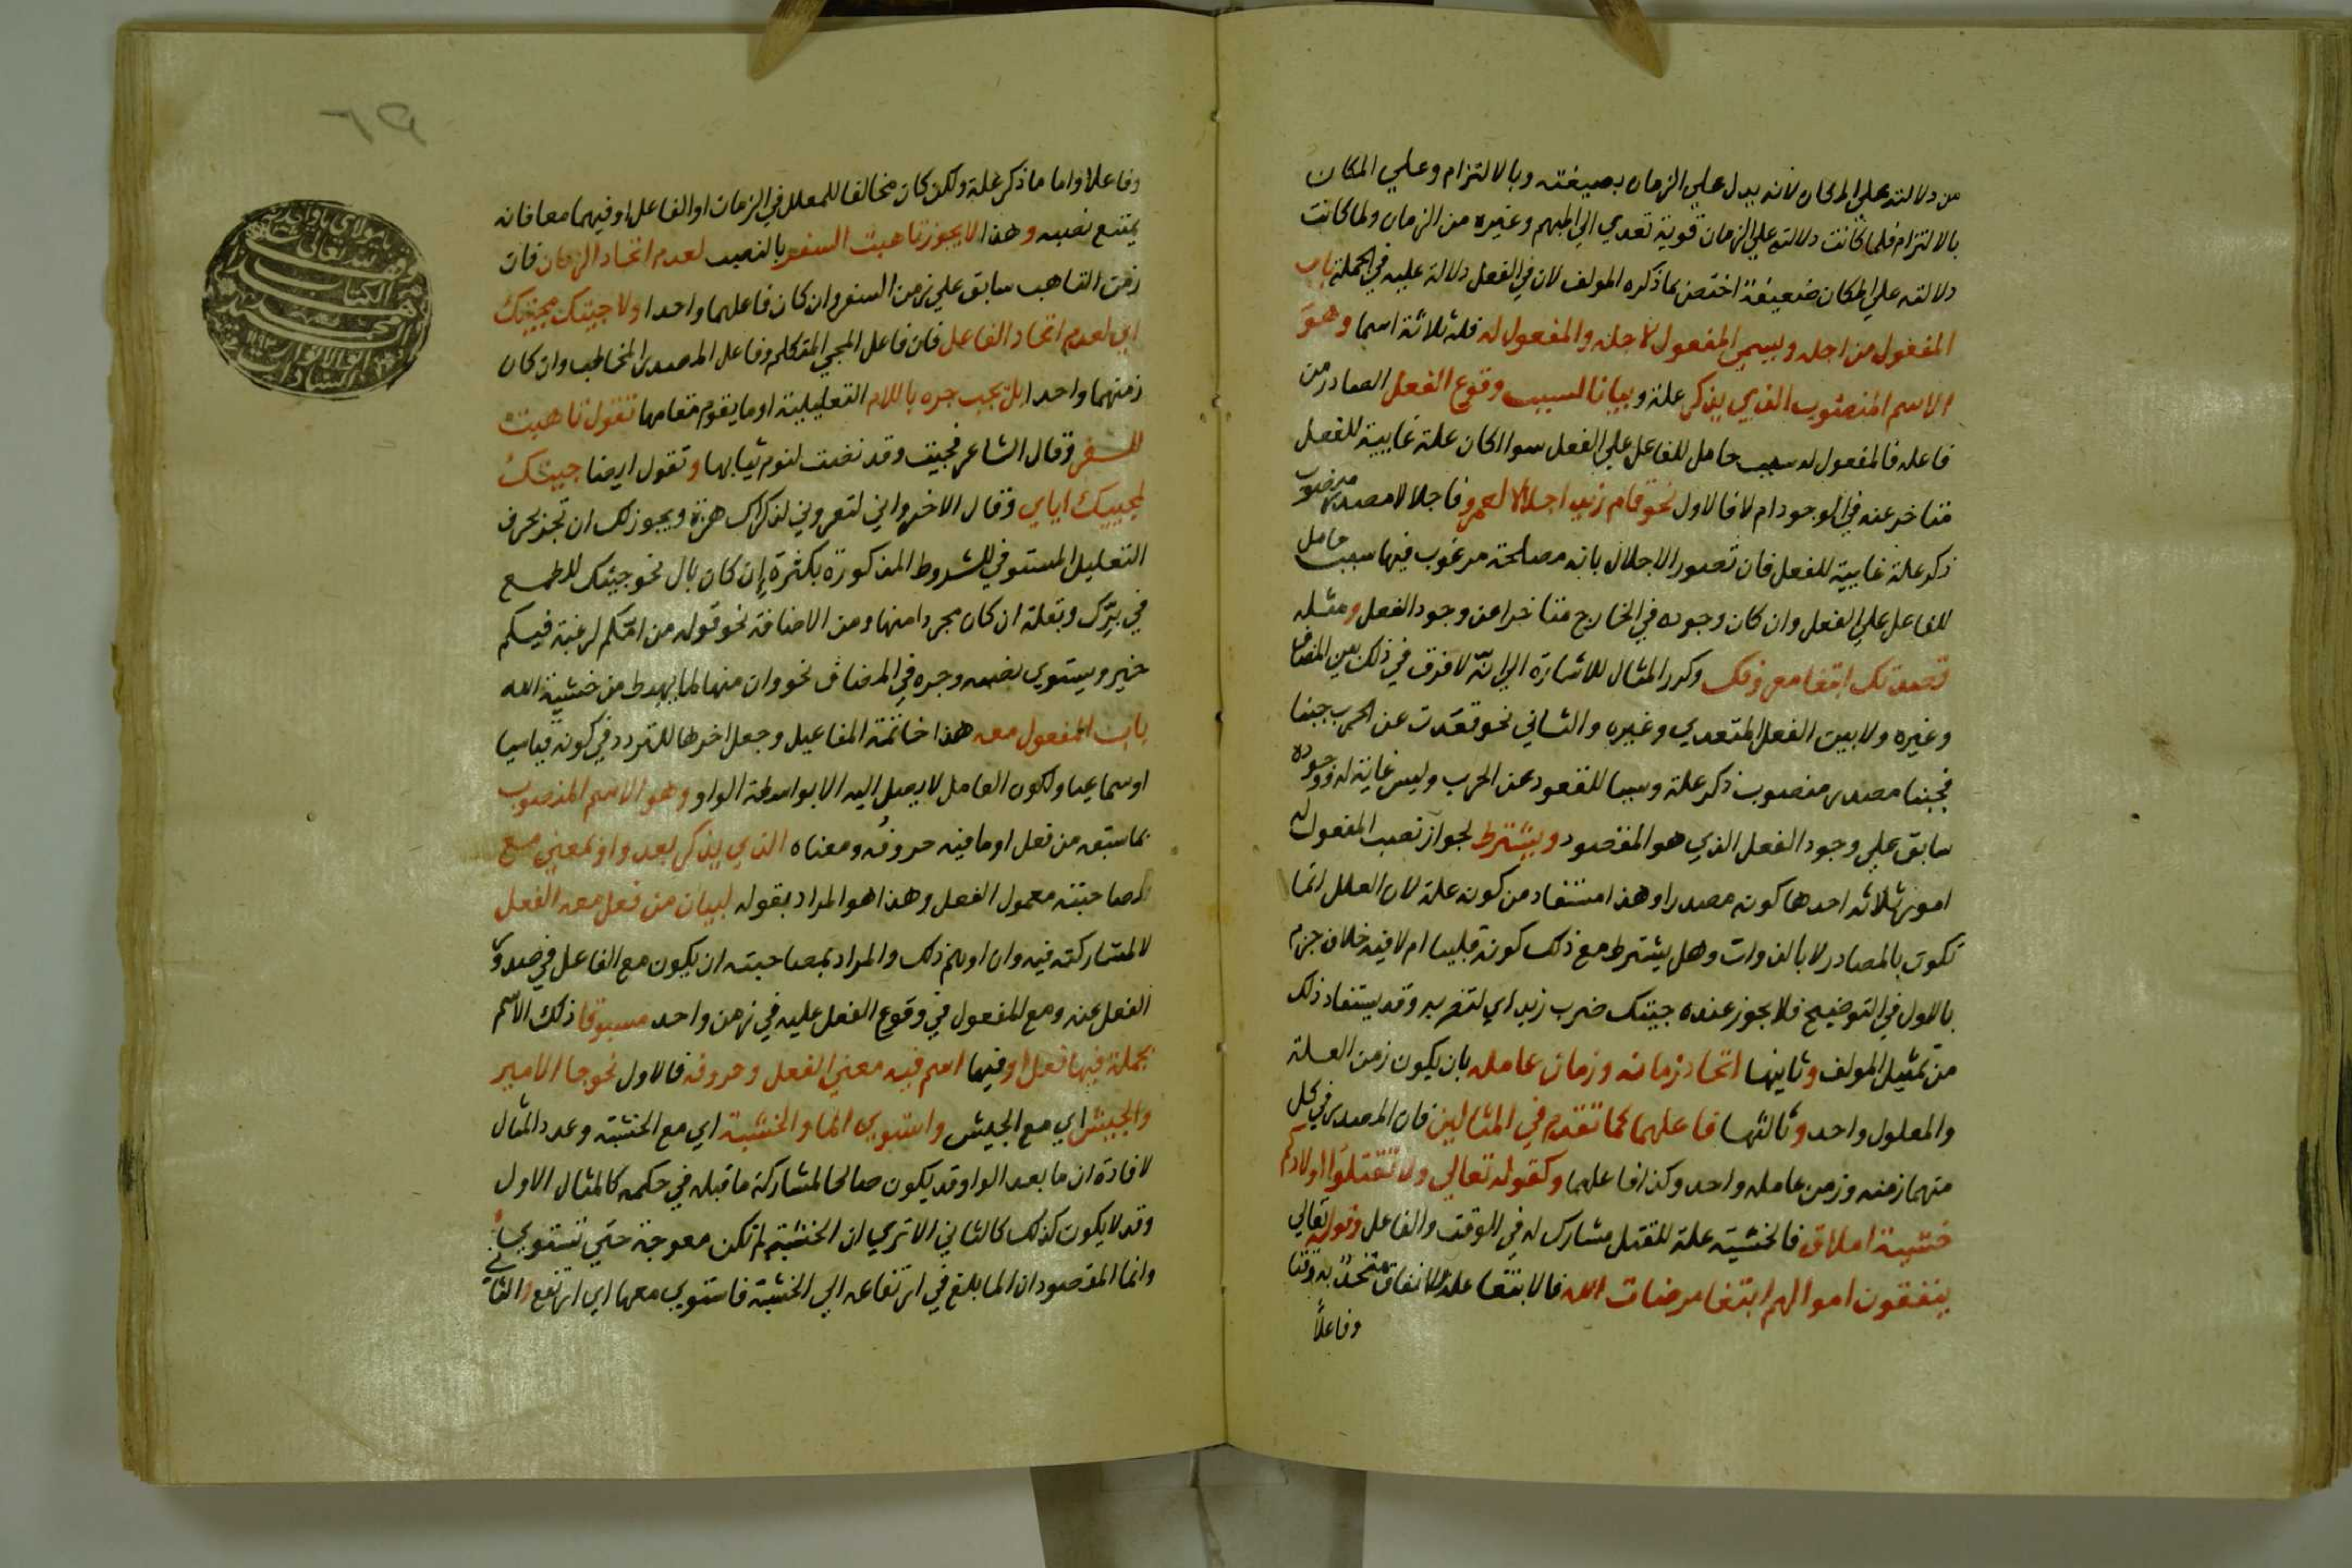 من دلالته علي المكان لانه يدل علي الزمان بصيغته وبالالتزام وعلي المكان
بالالتزام فلما كانت دلالته علي الزمان قوية تعدي الي المبهم وغيره من الزمان ولما كانت
دلالته علي المكان ضعيفة اختص بما ذكره المولف لان في الفعل دلالة عليه في الجملة باب
المفعول من اجله ويسمي المفعول لاجله والمفعول له فله ثلاثة اسما وهو
الاسم المنصوب الذي يذكر علة وبيانا لسبب وقوع الفعل الصادر من
فاعله فالمفعول له سبب حامل للفاعل علي الفعل سواا كان علة غايية للفعل
متاخر عنه في الوجود ام لا فالاول نحو قام زيد اجلالا لعمرو فاجلالا مصدر منصوب
ذكر علة غايية للفعل فان تصور الاجلال بانه مصلحة مرغوب فيها سبب حامل
للفاعل علي الفعل وان كان وجوده في الخارج متاخرا عن وجود الفعل ومثله
قصدتك ابتغا معروفك وكرر المثال للاشارة الي انه لا فرق في ذلك بين المضاف
وغيره ولا بين الفعل المتعدي وغيره والثاني نحو قعدت عن الحرب جبنا
فجبنا مصدر منصوب ذكر علة وسببا للقعود عن الحرب وليس غاية له ووجوده
سابق علي وجود الفعل الذي هو المقصود ويشترط لجواز نصب المفعول له
امور ثلاثه احدها كونه مصدرا وهذا مستفاد من كونه علة لان العلل انما
تكون بالمصادر لا بالذوات وهل يشترط مع ذلك كونه قلبيا ام لا فيه خلاف جزم
بالاول في التوضيح فلا يجوز عنده جيتك ضرب زيد اي لتضربه وقد يستفاد ذلك
من تمثيل المولف وثانيها اتحاد زمانه وزمان عامله بان يكون زمن العلة
والمعلول واحد وثالثها فاعلهما كما تقدم في المثالين فان المصدر في كل
منهما زمنه وزمن عامله واحد وكذا فاعلهما وكقوله تعالي ولا تقتلوا اولادكم
خشية املاق فالخشية علة للقتل مشارك له في الوقت والفاعل وقوله تعالي
ينفقون اموالهم ابتغا مرضات الله فالابتغا علة للانفاق متحد به وقتا
وفاعلاً
٦٩
وفاعلا واما ما ذكر علة ولكن كان مخالفا للمعلل في الزمان او الفاعل او فيهما معا فانه
يمتنع نصبه وهذا لا يجوز تاهبت السفر بالنصب لعدم اتحاد الزمان فان
زمن التاهب سابق علي زمن السفر وان كان فاعلهما واحدا ولا جيتك مجيئك
اي لعدم اتحاد الفاعل فان فاعل المجي المتكلم وفاعل المصدر المخاطب وان كان
زمنهما واحدا بل يجب جره باللام التعليلية او ما يقوم مقامها تقول تاهبت
للسفر وقال الشاعر فجيت وقد نضت لنوم ثيابها وتقول ايضا جيتك
لمجيئك اياي وقال الاخر واني لتعروني لذكراك هزة ويجوز لك ان تجر بحرف
التعليل المستوفي للشروط المذكورة بكثرة إن كان بال نحو جيتك للطمع
في برك وبقلة ان كان مجردا منها ومن الاضافة نحو قوله من امكم لرغبة فيكم
خير ويستوي نصبه وجره في المضاف نحو وان منها لما يهبط من خشية الله
باب المفعول معه هذا خاتمة المفاعيل وجعل اخرها للتردد في كونه قياسيا
او سماعيا ولكون العامل لا يصل اليه الا بواسطة الواو وهو الاسم المنصوب
بما سبقه من فعل او ما فيه حروفه ومعناه الذي يذكر بعد واو بمعني مع
لمصاحبته معمول الفعل وهذا هو المراد بقوله لبيان من فعل معه الفعل
لا لمشاركته فيه وان اوهم ذلك والمراد بمصاحبته ان يكون مع الفاعل في صدور
الفعل عنه ومع المفعول في وقوع الفعل عليه في زمن واحد مسبوقا ذلك الاسم
بجملة فيها فعل او فيها اسم فيه معني الفعل وحروفه فالاول نحو جا الامير
والجيش اي مع الجيش واستوي الما والخشبة اي مع الخشبة وعدد المثال
لافادة ان ما بعد الواو قد يكون صالحا لمشاركة ما قبله في حكمه كالمثال الاول
وقد لا يكون كذلك كالثاني الا تري ان الخشبة لم تكن معوجة حتي تستوي
وانما المقصود ان الما بلغ في ارتفاعه الي الخشبة فاستوي معها اي ارتفع والثاني